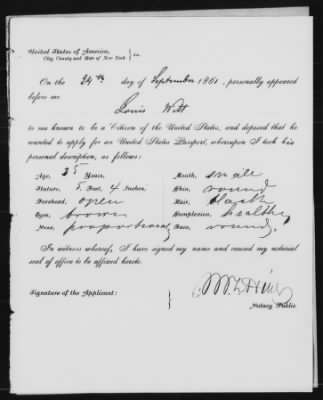 United States of America,
City, County and State of New York. } ss.
On the 24th day of September 1861, personally appeared
before me
Louis Witt
to me known to be a Citizen of the United States, and deposed that he
wanted to apply for an United States Passport, whereupon I took his
personal description, as follows:
Age, 25 Years, Mouth, small
Stature, 5 Feet, 4 Inches, Chin, round
Forehead, open Hair, black
Eyes, brown Complexion, healthy
Nose, proportional Face, round.
In witness whereof, I have signed my name and caused my notarial
seal of office to be affixed hereto.
Signature of the Applicant:
Notary Public.